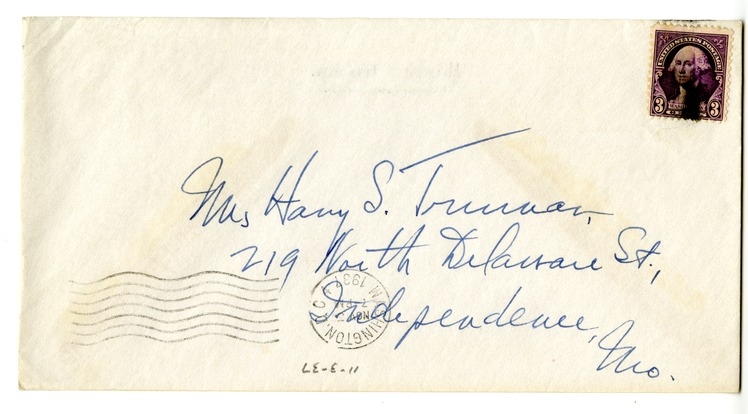 UNITED STATES POSTAGE
3 3
Mrs Harry S. Truman,
219 North Delaware St.,
Independence,
Mo.
WASHINGTON, D.C.
NOV
1937
11-3-37